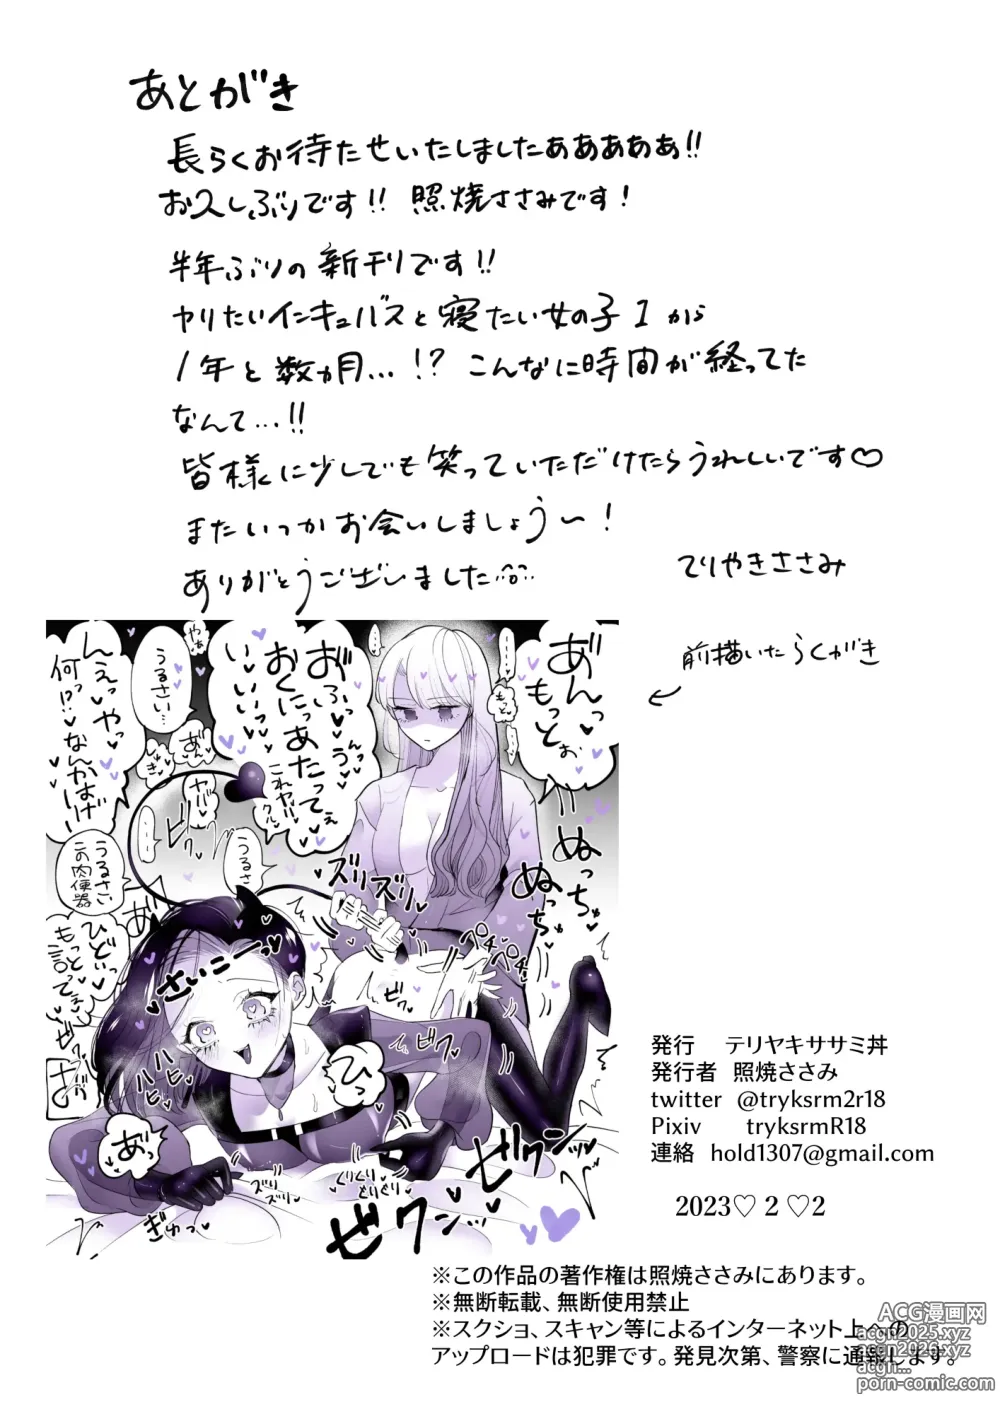 あとがき
長らくお待たせいたしましたあああああ!!
お久しぶりです!! 照焼ささみです!
半年ぶりの新刊です!!
ヤりたいインキュバスと寝たい女の子1から
1年と数ヵ月...!? こんなに時間が経ってた
なんて...!!
皆様に少しでも笑っていただけたらうれしいです♡
またいつかお会いしましょう～!
ありがとうございました
てりやきささみ
前描いたらくがき
あんっ♥
もっとぉ
おふっ
おくにっあたってぇ
いいっ
うるさい…
んぇっやっ
何っ!?なんかはげ
うるさい
この肉便器
ひどいっ
もっと言ってぇ
さいこーっ♥
ズリズリッ
ぬっちゅ
ぬっちゅ
ペチペチ
ビクッ
ひっ
あっ
ぎゅっ
ズリズリッ
ぐりぐり
ゼクンッ
ゼクンッ
発行 テリヤキササミ丼
発行者 照焼ささみ
twitter @tryksrm2r18
Pixiv tryksrmR18
連絡 hold1307@gmail.com
2023♡2♡2
※この作品の著作権は照焼ささみにあります。
※無断転載、無断使用禁止
※スクショ、スキャン等によるインターネット上への
アップロードは犯罪です。発見次第、警察に通報します。
ACG漫画网
acgn2025.xyz
acgn2026.xyz
acgn...
porn-comic.com